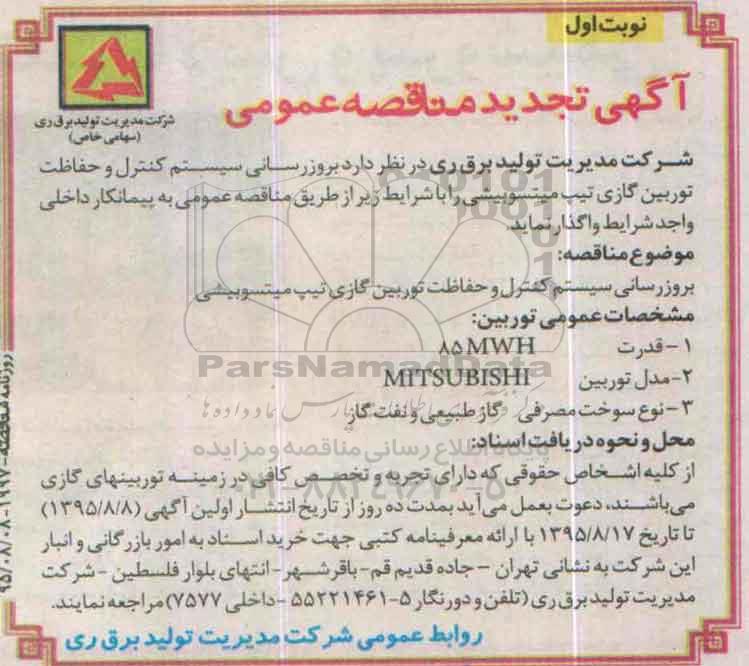 نوبت اول
آگهی تجدید مناقصه عمومی
شرکت مدیریت تولید برق ری
(سهامی خاص)
شرکت مدیریت تولید برق ری در نظر دارد بروزرسانی سیستم کنترل و حفاظت
توربین گازی تیپ میتسوبیشی را با شرایط زیر از طریق مناقصه عمومی به پیمانکار داخلی
واجد شرایط واگذار نماید.
موضوع مناقصه:
بروزرسانی سیستم کنترل و حفاظت توربین گازی تیپ میتسوبیشی
مشخصات عمومی توربین:
۱- قدرت ۸۵MWH
۲- مدل توربین MITSUBISHI
۳- نوع سوخت مصرفی گاز طبیعی و نفت گاز
محل و نحوه دریافت اسناد:
از کلیه اشخاص حقوقی که دارای تجربه و تخصص کافی در زمینه توربینهای گازی
می‌باشند، دعوت بعمل می‌آید بمدت ده روز از تاریخ انتشار اولین آگهی (۱۳۹۵/۸/۸)
تا تاریخ ۱۳۹۵/۸/۱۷ با ارائه معرفینامه کتبی جهت خرید اسناد به امور بازرگانی و انبار
این شرکت به نشانی تهران – جاده قدیم قم- باقرشهر- انتهای بلوار فلسطین - شرکت
مدیریت تولید برق ری (تلفن و دورنگار ۵-۵۵۲۲۱۴۶۱ -داخلی ۷۵۷۷) مراجعه نمایند.
روابط عمومی شرکت مدیریت تولید برق ری
روزنامه مناقصه-۱۹۹۷-۹۵/۰۸/۰۸
ParsNamadData
پایگاه اطلاع رسانی مناقصه و مزایده
۰۲۱-۸۸۳۴۹۶۷۰-۵